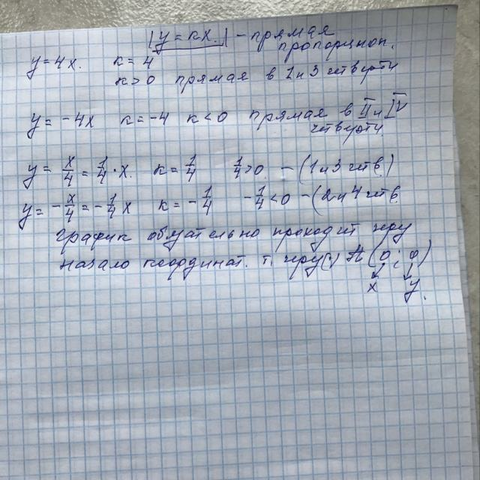 |y = kx.| - прямая
пропорцион.
y = 4x. k = 4
k > 0 прямая в 1 и 3 четверти
y = -4x k = -4 k < 0 прямая в II и IV
четверти.
y = x/4 = 1/4 · x. k = 1/4 1/4 > 0. - (1 и 3 четв.)
y = -x/4 = -1/4 x k = -1/4 -1/4 < 0 - (2 и 4 четв.
график обязательно проходит через
начало координат. т. (0; 0)
x y.